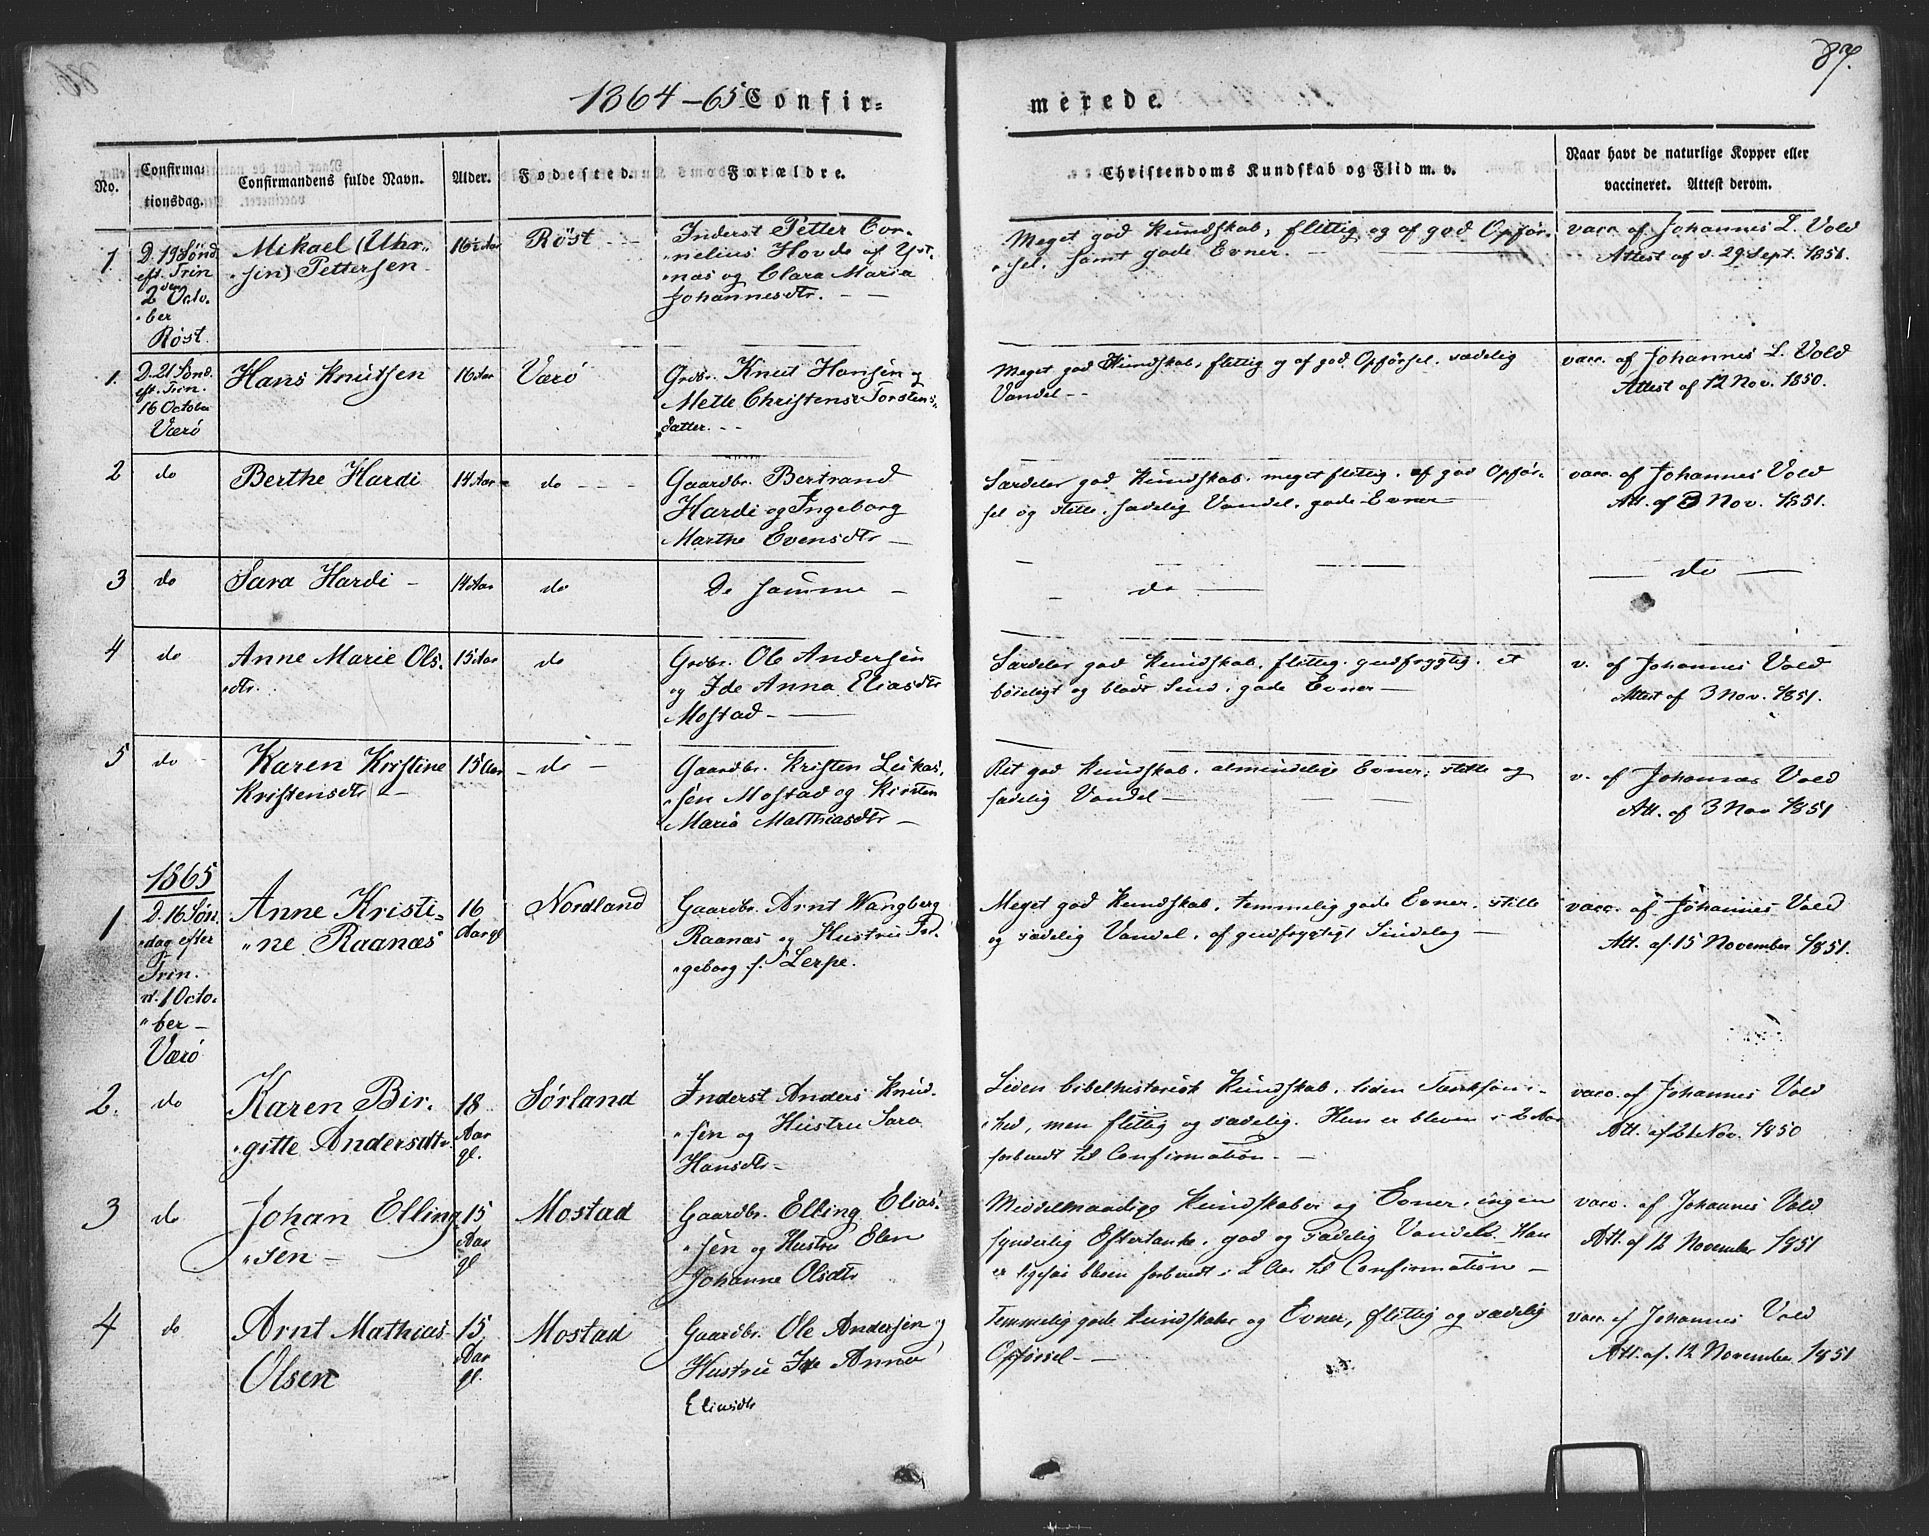 87.
1864-65 Confir= merede.
No. Confirma= tionsdag. Confirmandens fulde Navn. Alder. Fodested. Forældre. Christendoms Kundskab og Flid m. v. Naar havt de naturlige Kopper eller vaccineret. Attest derom.
1. D. 19 Sønd. Mikael (Uhr- 16½ Aar Røst Inderst Petter Cor- Meget god Kundskab, flittig og af god Opfør- vacc. af Johannes L. Vold
eft. Trin sin) Pettersen nelius Hovde af Yst- sel, samt gode Evner. Attest af d. 29 Sept. 1851.
den 2 Octo- næs og Clara Maria
ber Johannesdtr.
Røst.
1. D. 21 Sønd. Hans Knutsen 16 Aar Værø Grdbr. Knut Hansen og Meget god Kundskab, flittig og af god Opførsel, sædelig vacc. af Johannes L. Vold
eft. Trin. Mette Christense Torstens- Vandel Attest af 12 Nov. 1850.
16 October datter.
Værø
2 do Berthe Hardi 14 Aar do Gaardbr. Bertrand Særdeles god Kundskab, meget flittig, af god Opfør- vacc. af Johannes Vold
Hardi og Ingeborg sel og stille, sædelig Vandel, gode Evner Att. af 3 Nov. 1851.
Marthe Evensdtr
3 do Sara Hardi 14 Aar do De samme do do
4 do Anne Marie Ols- 15 Aar do Grdbr. Ole Andersen Særdeles god Kundskab, flittig, gudfrygtig, et v. af Johannes Vold
dtr. og Ide Anna Eliasdtr bøieligt og blødt Sind, gode Evner Attest af 3 Nov. 1851.
Mostad
5 do Karen Kristine 15 Aar do Gaardbr. Kristen Lukas- Ret god Kundskab, almindelige Evner, stille og v. af Johannes Vold
Kristensdtr sen Mostad og Kirsten sædelig Vandel Att. af 3 Nov 1851
Maria Mathiasdtr
1865
1 D. 16 Søn- Anne Kristi- 16 Nordland Gaardbr. Arnt Wangberg Meget god Kundskab, temmelig gode Evner, stille vacc. af Johannes Vold
dag efter ne Raanæs Aar gl Raanæs og Hustru In- og sædelig Vandel, af gudfrygtigt Sindelag Att. af 15 November 1851.
Trin. geborg f. Lerpe.
d. 1 Octo-
ber
Værø
2. do Karen Bir- 18 Sørland Inderst Anders Knud- Liden bibelhistorisk Kundskab, liden Tænksom- vacc. af Johannes Vold
gitte Andersdtr. Aar sen og Hustru Sara hed, men flittig og sædelig. Hun er bleven i 2 Aar Att. af 21 Nov. 1850
gl. Hansdtr forberedt til Confirmation.
3 do Johan Elling 15 Mostad Gaardbr. Elling Elias- Middelmaadige Kundskaber og Evner, ingen vacc. af Johannes Vold
sen Aar sen og Hustru Elen synderlig Eftertanke, god og sædelig Vandel. Han Att. af 12 November 1851
gl. Johanne Olsdtr er ligesaa bleven forberedt i 2 Aar til Confirmation
4 do Arnt Mathias 15 Mostad Gaardbr. Ole Andersen og Temmelig gode Kundskaber og Evner, flittig og sædelig vacc. af Johannes Vold
Olsen Aar Hustru Ide Anna Opførsel Att. af 12 November 1851
gl. Eliasdtr